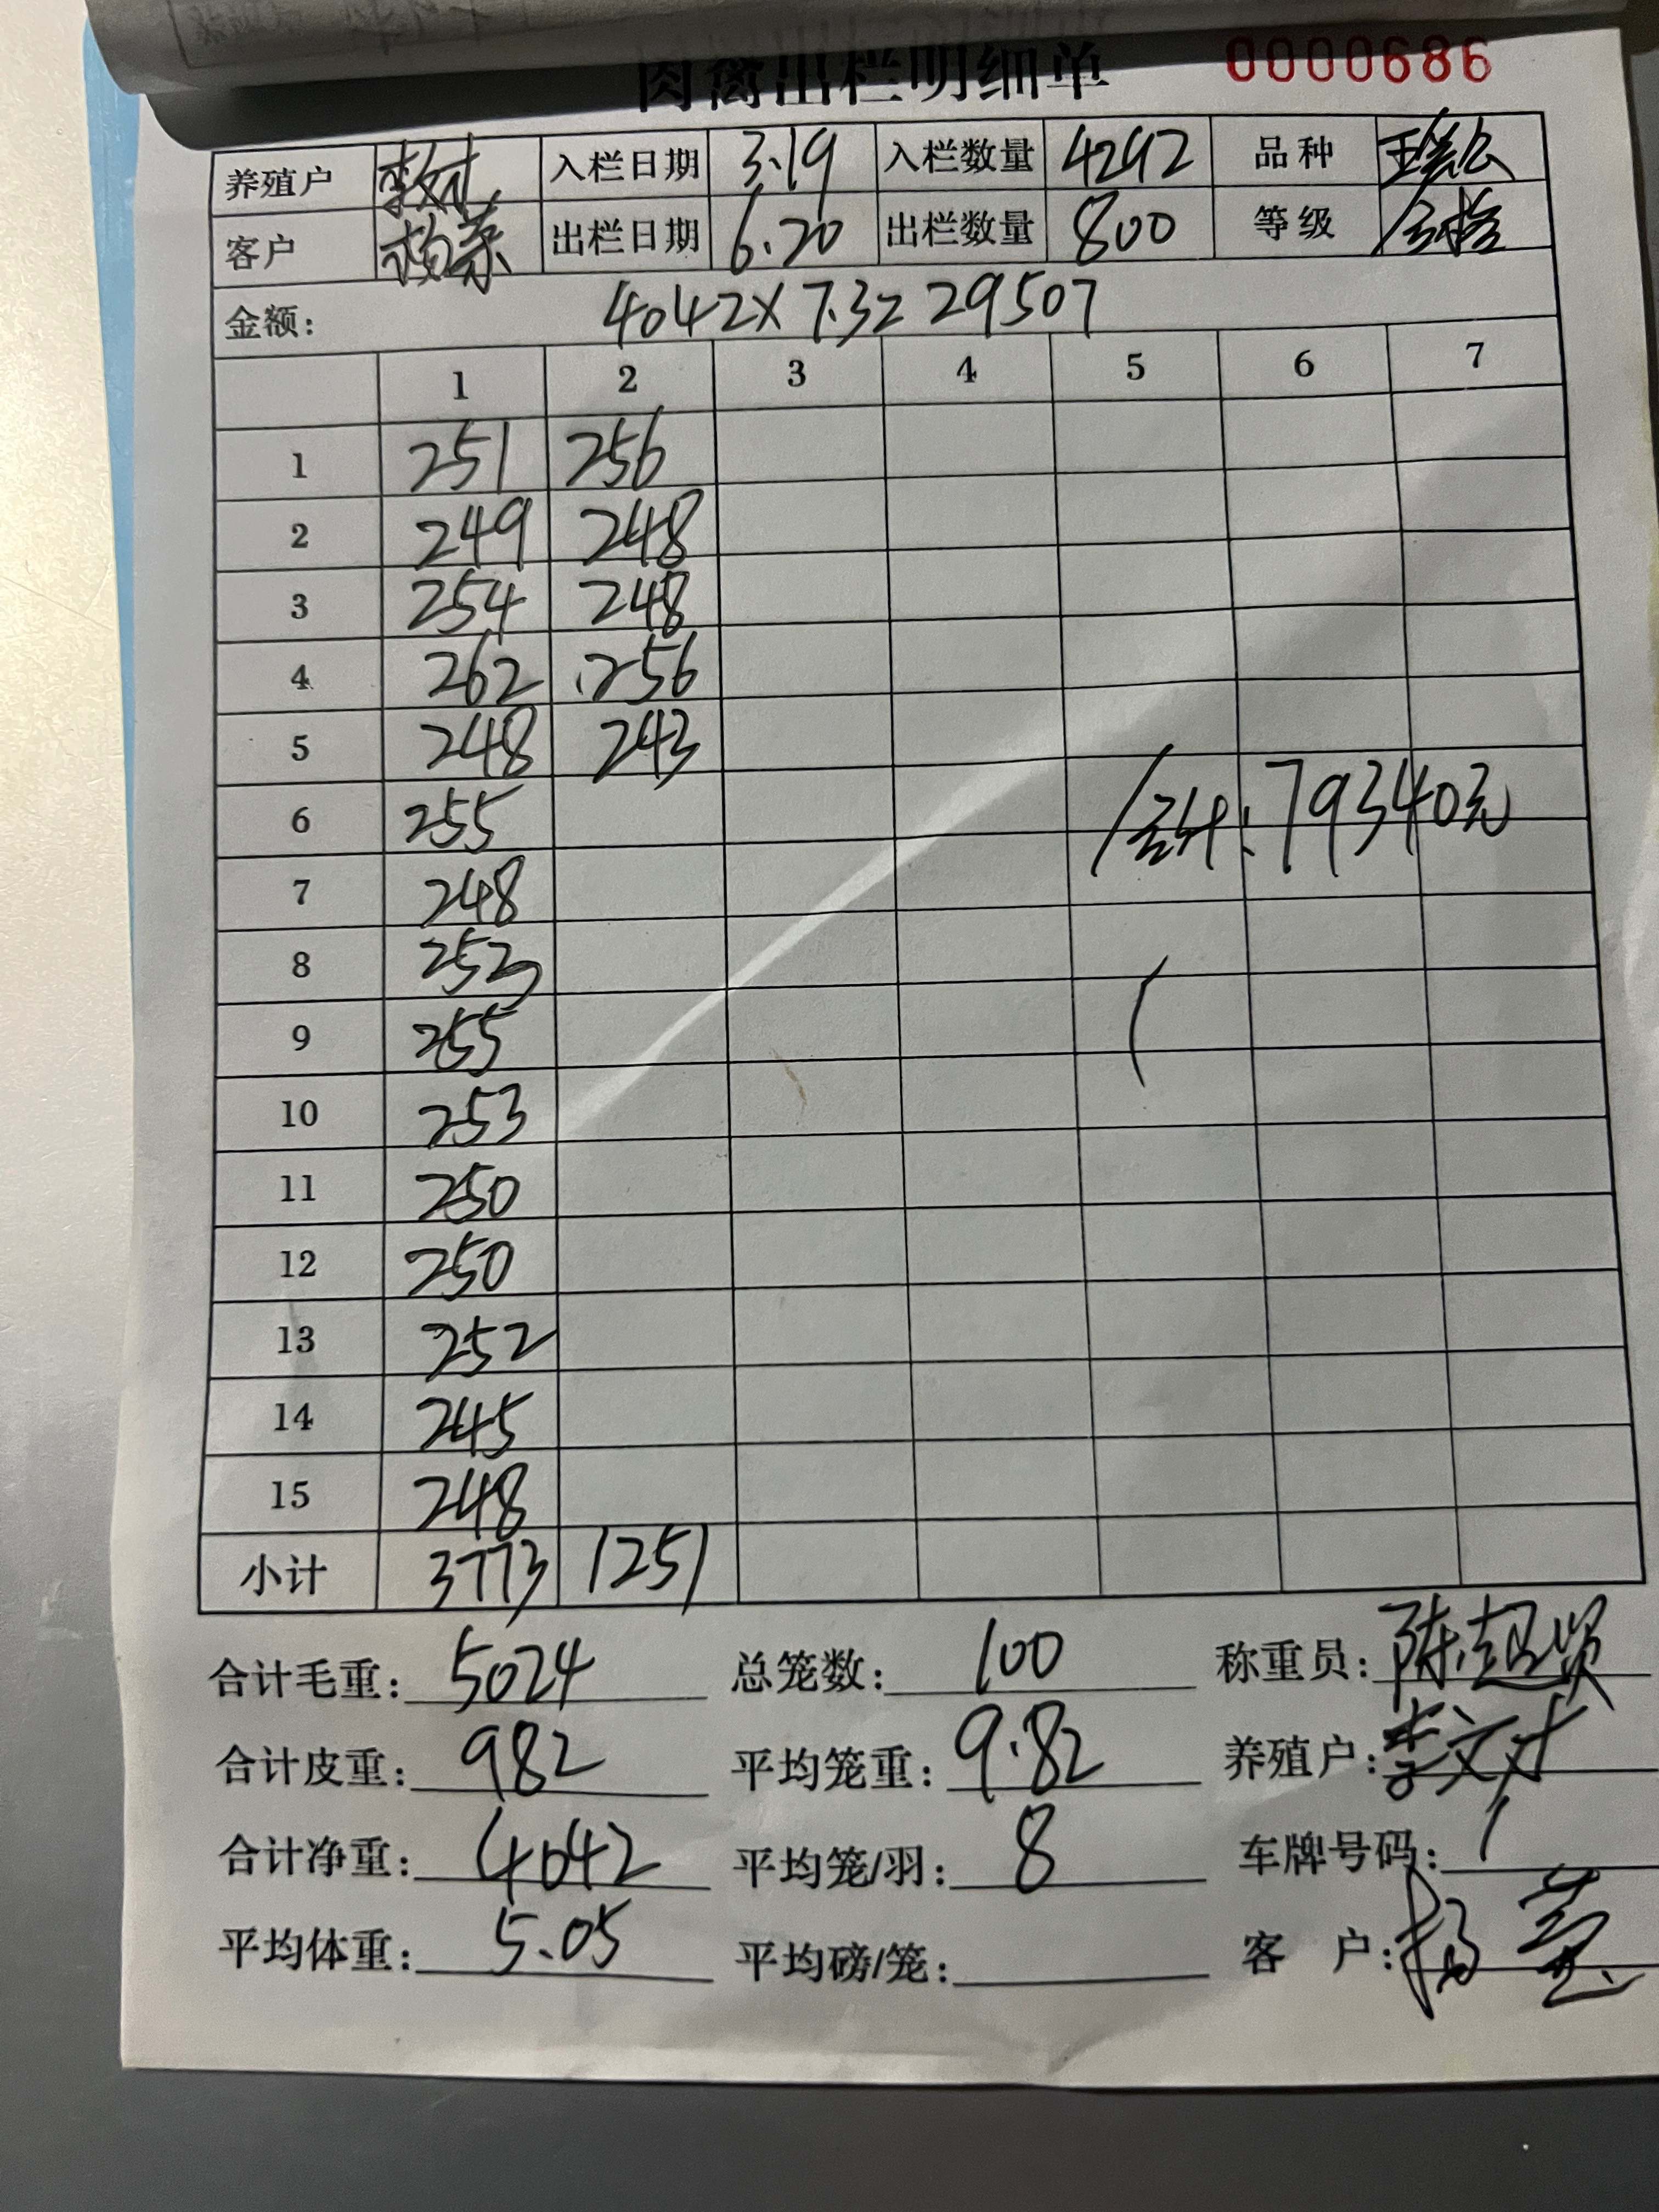 肉禽出栏明细单 0000686
养殖户 李文才 入栏日期 3.19 入栏数量 4292 品种
客户 出栏日期 6.20 出栏数量 800 等级 合格
金额: 4042×7.3=29507
1 2 3 4 5 6 7
1 251 256
2 249 248
3 254 248
4 262 256
5 248 243
6 255 合计:79340元
7 248
8 253
9 255
10 253
11 250
12 250
13 252
14 245
15 248
小计 3773 1251
合计毛重: 5024 总笼数: 100 称重员: 陈超贤
合计皮重: 982 平均笼重: 9.82 养殖户: 李文才
合计净重: 4042 平均笼/羽: 8 车牌号码:
平均体重: 5.05 平均磅/笼: 客户: